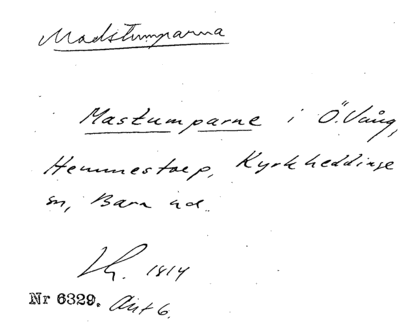 Madstumparna
Mastumparne i Ö. Vång,
Hemmestorp, Kyrkheddinge
sn, Bara hd.
Lh. 1814
Nr 6329. Akt 6.